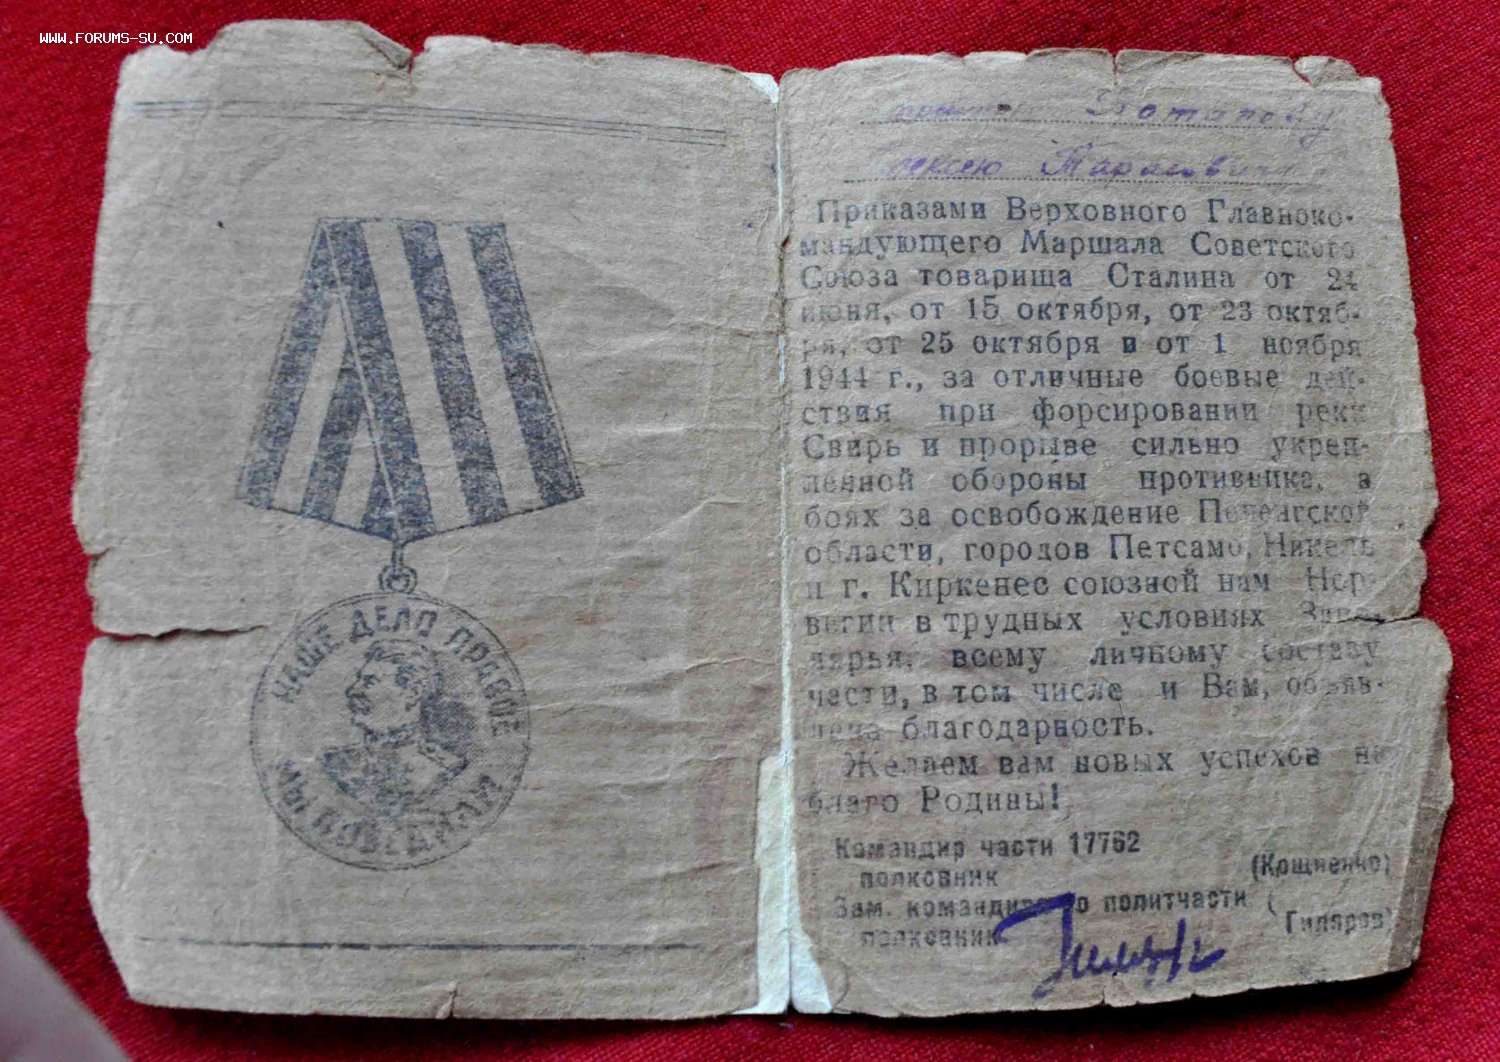 www.forums-su.com
НАШЕ ДЕЛО ПРАВОЕ
МЫ ПОБЕДИЛИ
Потапову
Алексею Тарасовичу
Приказами Верховного Главноко-
мандующего Маршала Советского
Союза товарища Сталина от 24
июня, от 15 октября, от 23 октяб-
ря, от 25 октября и от 1 ноября
1944 г., за отличные боевые дей-
ствия при форсировании реки
Свирь и прорыве сильно укреп-
ленной обороны противника, в
боях за освобождение Печенгской
области, городов Петсамо, Никель
и г. Киркенес союзной нам Нор-
вегии в трудных условиях Запо-
лярья, всему личному составу
части, в том числе и Вам, объяв-
лена благодарность.
Желаем вам новых успехов на
благо Родины!
Командир части 17762
полковник (Кощиенко)
Зам. командира по политчасти
полковник (Гиляров)